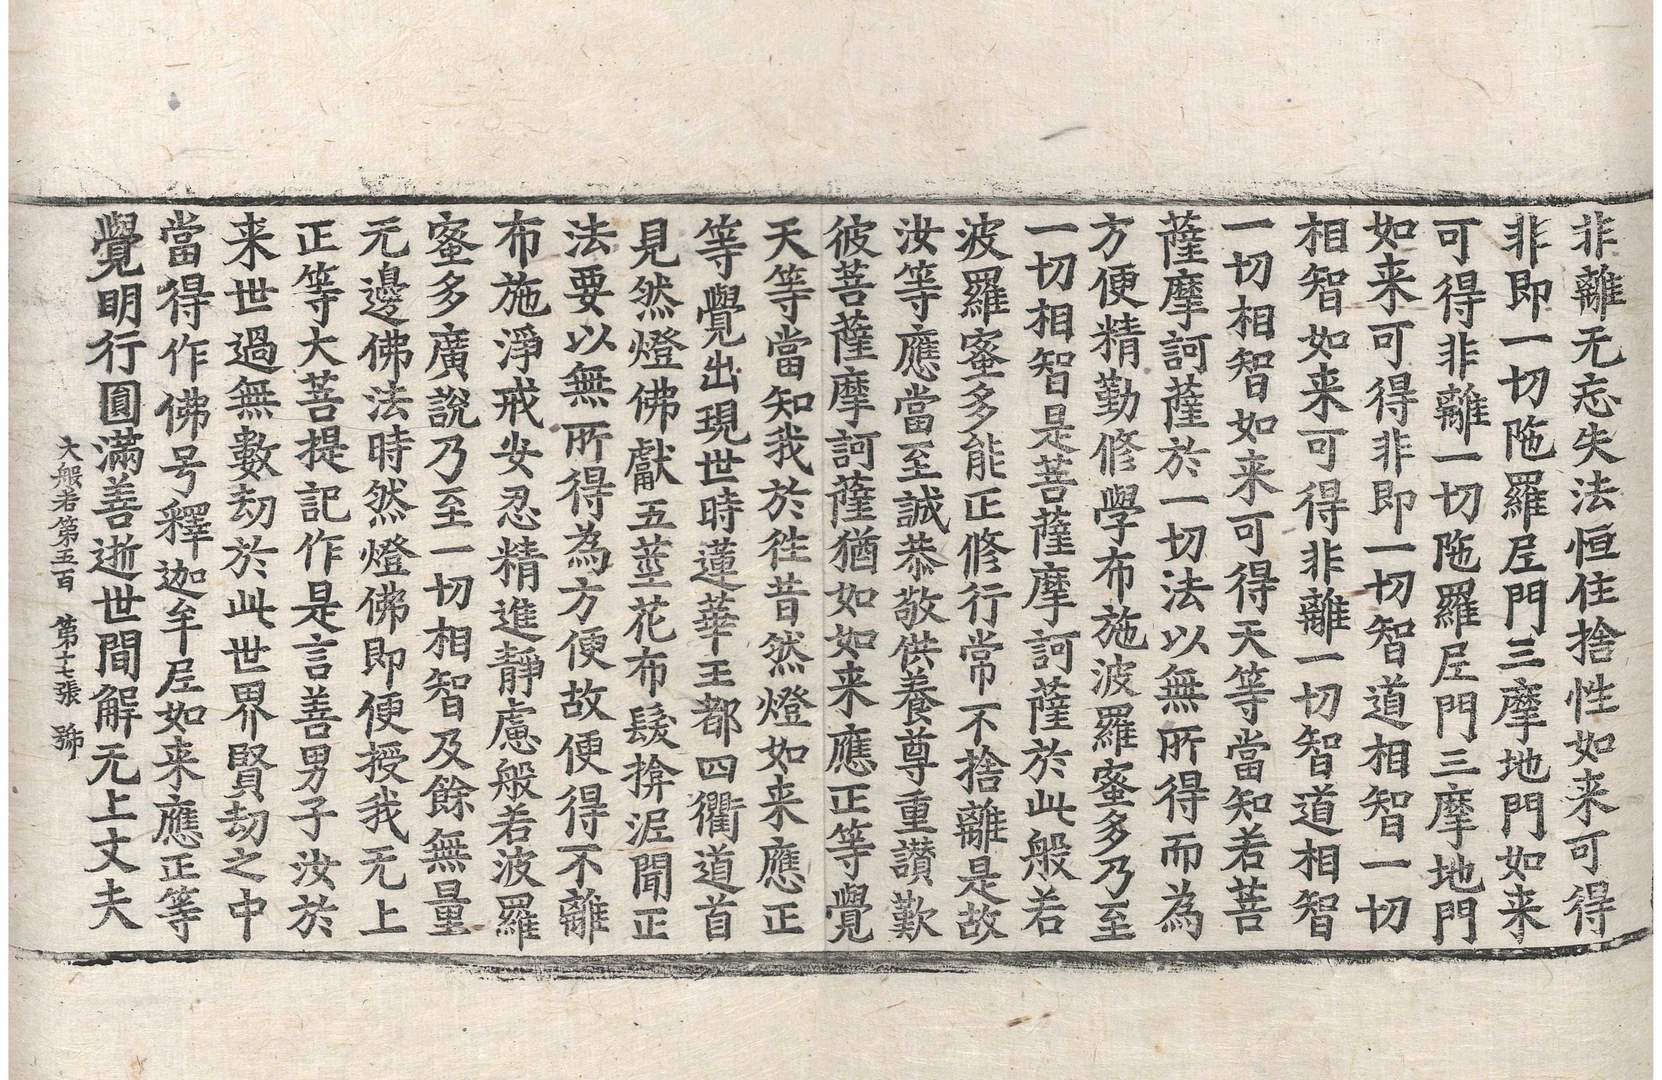 非離无忘失法恒住捨性如来可得
非即一切陁羅尼門三摩地門如来
可得非離一切陁羅尼門三摩地門
如来可得非即一切智道相智一切
相智如来可得非離一切智道相智
一切相智如来可得天等當知若菩
薩摩訶薩於一切法以無所得而為
方便精勤修學布施波羅蜜多乃至
一切相智是菩薩摩訶薩於此般若
波羅蜜多能正修行常不捨離是故
汝等應當至誠恭敬供養尊重讚歎
彼菩薩摩訶薩猶如如来應正等覺
天等當知我於徃昔然燈如来應正
等覺出現世時蓮華王都四衢道首
見然燈佛獻五莖花布髮揜泥聞正
法要以無所得為方便故便得不離
布施淨戒安忍精進靜慮般若波羅
蜜多廣說乃至一切相智及餘無量
无邊佛法時然燈佛即便授我无上
正等大菩提記作是言善男子汝於
来世過無數劫於此世界賢劫之中
當得作佛号釋迦牟尼如来應正等
覺明行圓滿善逝世間解无上丈夫
大般若第五百 第十七張 號